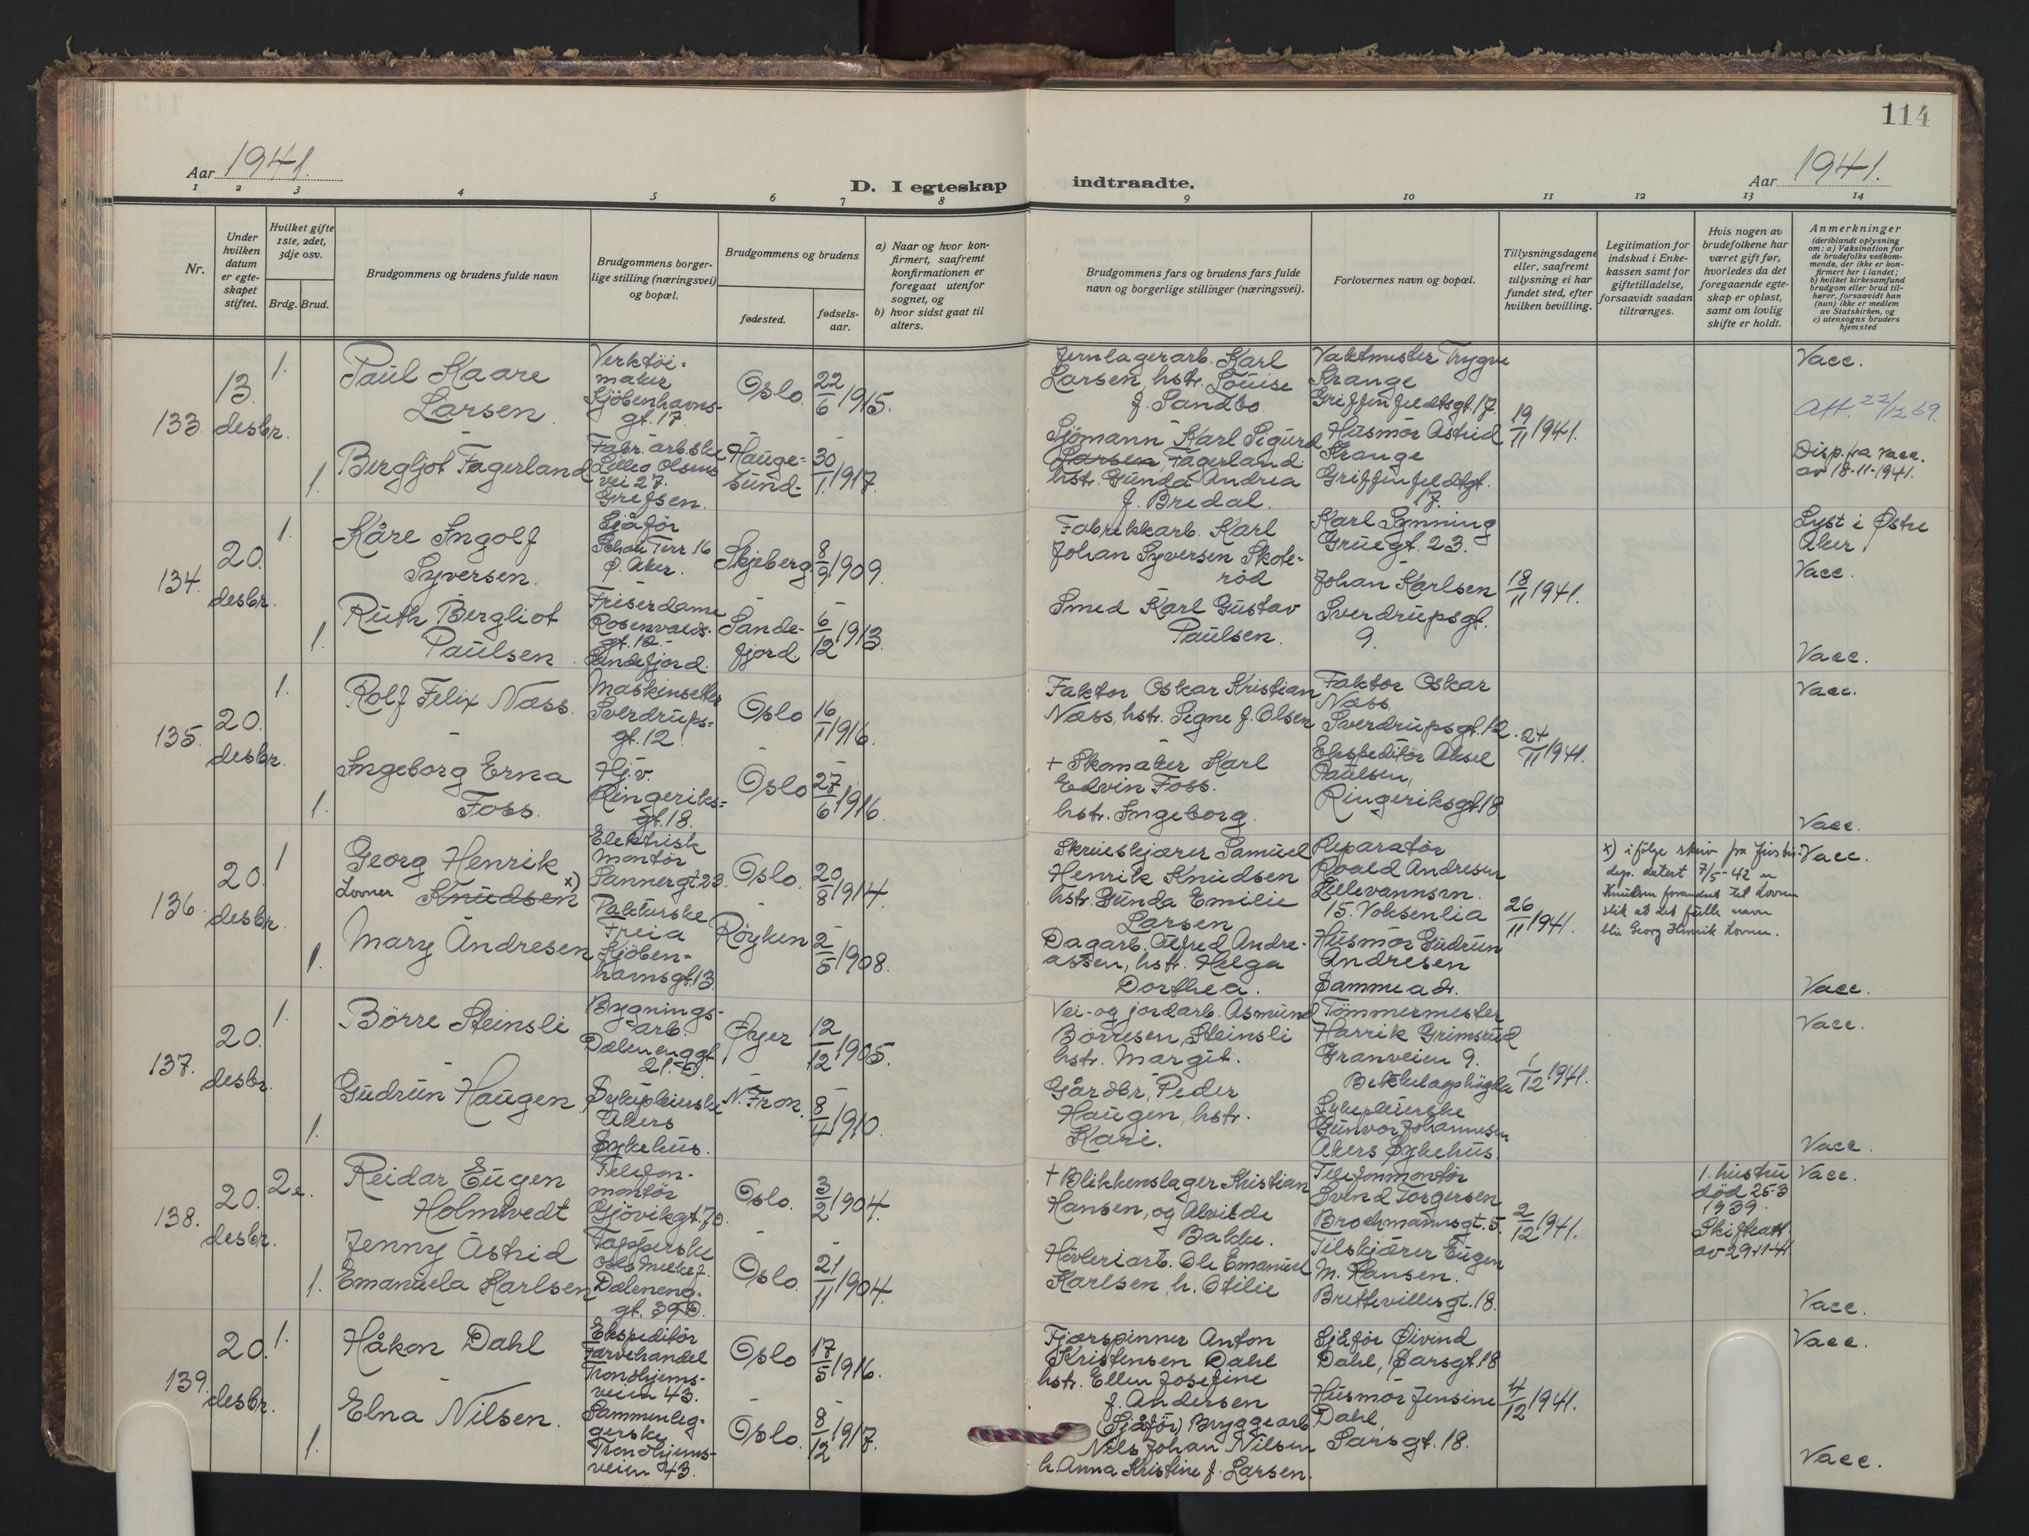 114
Aar 1941.
D. I egteskap indtraadte.
Aar 1941.
1 2 3 4 5 6 7 8 9 10 11 12 13 14
Nr.
Under hvilken datum er egteskapet stiftet.
Hvilket gifte 1ste, 2det, 3dje osv.
Brdg. Brud.
Brudgommens og brudens fulde navn
Brudgommens borgerlige stilling (næringsvei) og bopæl.
Brudgommens og brudens
fødested.
fødselsaar.
a) Naar og hvor konfirmert, saafremt konfirmationen er foregaat utenfor sognet, og
b) hvor sidst gaat til alters.
Brudgommens fars og brudens fars fulde navn og borgerlige stillinger (næringsvei).
Forlovernes navn og bopæl.
Tillysningsdagene eller, saafremt tillysning ei har fundet sted, efter hvilken bevilling.
Legitimation for indskud i Enkekassen samt for giftetilladelse, forsaavidt saadan tiltrænges.
Hvis nogen av brudefolkene har været gift før, hvorledes da det foregaaende egteskap er opløst, samt om lovlig skifte er holdt.
Anmerkninger
(deriblandt oplysning om: a) Vaksination for de brudefolks vedkommende, der ikke er konfirmert her i landet;
b) hvilket kirkesamfund brudgom eller brud tilhører, forsaavidt han (hun) ikke er medlem av Statskirken, og
c) utensogns bruders hjemsted
133. 13. desbr.
1.
Paul Kaare
Larsen.
Verktöimaker
Kjöbenhavnsgt. 17.
Oslo. 22/6 1915.
Jernlagerarb. Karl
Larsen, hstr. Louise
f. Sandbo.
Vaktmester Trygve
Krange
Griffenfeldtsgt. 17.
19/11 1941.
Vacc.
Att. 22/12 69.
1.
Bergljot Fagerland
Fabr. arb.ske
Lilleo Olsens
vei 27.
Grefsen.
Haugesund. 30/1 1917.
Sjömann Karl Sigurd
Larsen, Fagerland
hstr. Gunda Andrea
f. Bredal.
Husmor Astrid
Krange
Griffenfeldtgt.
17.
Disp. fra vacc.
av 18-11-1941.
134. 20. desbr.
1.
Kåre Ingolf
Syversen.
Sjåför
Schou Terr. 16
Ø. Aker.
Skjeberg 8/9 1909.
Fabrikkarb. Karl
Johan Syversen Skoleröd
Karl Lynning
Gruegt. 23.
18/11 1941.
Lyst i Østre
Aker.
Vacc.
1.
Ruth Bergliot
Paulsen
Friserdame
Rosenvoldsgt. 12.
Sandefjord.
Sandefjord. 6/12 1913.
Smed Karl Gustav
Paulsen.
Johan Karlsen
Sverdrupsgt.
9.
Vacc.
135. 20. desbr.
1.
Rolf Felix Næss.
Maskinsetter
Sverdrupsgt. 12.
Oslo 16/1 1916.
Faktor Oskar Kristian
Næss, hstr. Signe f. Olsen
Faktor Oskar
Næss
Sverdrupsgt. 12.
24/11 1941.
Vacc.
1.
Ingeborg Erna
Foss.
Hj.v.
Ringeriksgt. 18.
Oslo 27/6 1916.
+ Skomaker Karl
Edvin Foss.
hstr. Ingeborg.
Ekspeditör Aksel
Paulsen,
Ringeriksgt 18
Vacc.
136. 20. desbr.
1
Georg Henrik
Lovner Knudsen x)
Elektrisk
Montör
Sannergt. 23.
Oslo. 20/8 1914.
Skrueskjærer Samuel
Henrik Knudsen
hstr. Gunda Emilie
Larsen
Reparatör
Roald Andresen
Lillevannsvn.
15. Voksenlia
26/11 1941.
x) ifölge skriv fra Justis-
dep. datert 7/5-42 er
Knudsen forandret til Lovner
slik at det fulle navn
blir Georg Henrik Lovner.
Vacc.
1.
Mary Andresen
Pakkerske
Freia
Kjöbenhavnsgt. 13.
Röyken 2/5 1908.
Dagarb. Alfred Andreassen, hstr. Helga
Dorthea.
Husmor Gudrun
Andresen
Samme adr.
Vacc.
137. 20. desbr.
1.
Börre Steinsli
Bygningsarb.
Dælenenggt.
21 b.
Øyer 12/12 1905.
Vei- og jordarb. Asmund
Börresen, Steinsli
hstr. Margit.
Tömmermester
Harrik Grimsrud
Granveien 9.
Bekkelagshögda
1/12 1941.
Vacc.
1.
Gudrun Haugen
Sykepleierske
Akers
Sykehus.
N. Fron. 8/4 1910.
Gårdbr. Peder
Haugen, hstr.
Kari.
Sykepleierske
Gunvor Johannesen
Akers Sykehus.
Vacc.
138. 20. desbr.
2e.
Reidar Eugen
Holmtvedt
Telefonmontör
Gjövikgt. 70.
Oslo. 3/2 1904.
+ Blikkenslager Kristian
Hansen, og Alvilde
Bakke.
Telefonmontör
Svend Torgersen
Brochmannsgt. 5.
2/12 1941.
1. hustru
död 25-3
1939.
Skifteatt.
av 29-11-41
Vacc.
1.
Jenny Astrid
Emanuela Karlsen
Tapperske
Oslo Melkef.
Dælenenggt. 39 D.
Oslo. 21/11 1904.
Hövleriarb. Ole Emanuel
Karlsen, h. Otilie
Tilskjærer Eugen
M. Hansen.
Brettevillesgt. 18.
Vacc.
139. 20. desbr.
1.
Håkon Dahl
Ekspeditör
Farvehandel
Trondhjemsveien 43.
Oslo 17/5 1916.
Fjærspinner Anton
Kristensen Dahl
hstr. Ellen Josefine
f. Andersen
Sjåför Øivind
Dahl, Sarsgt. 18
4/12 1941.
Vacc.
1.
Elna Nilsen.
Sammenleggerske
Trondhjemsveien 43.
Oslo. 8/12 1917.
Sjåför, Bryggearb.
Nils Johan Nilsen
h. Anna Kristine f. Larsen.
Husmor Jensine
Dahl,
Sarsgt. 18.
Vacc.